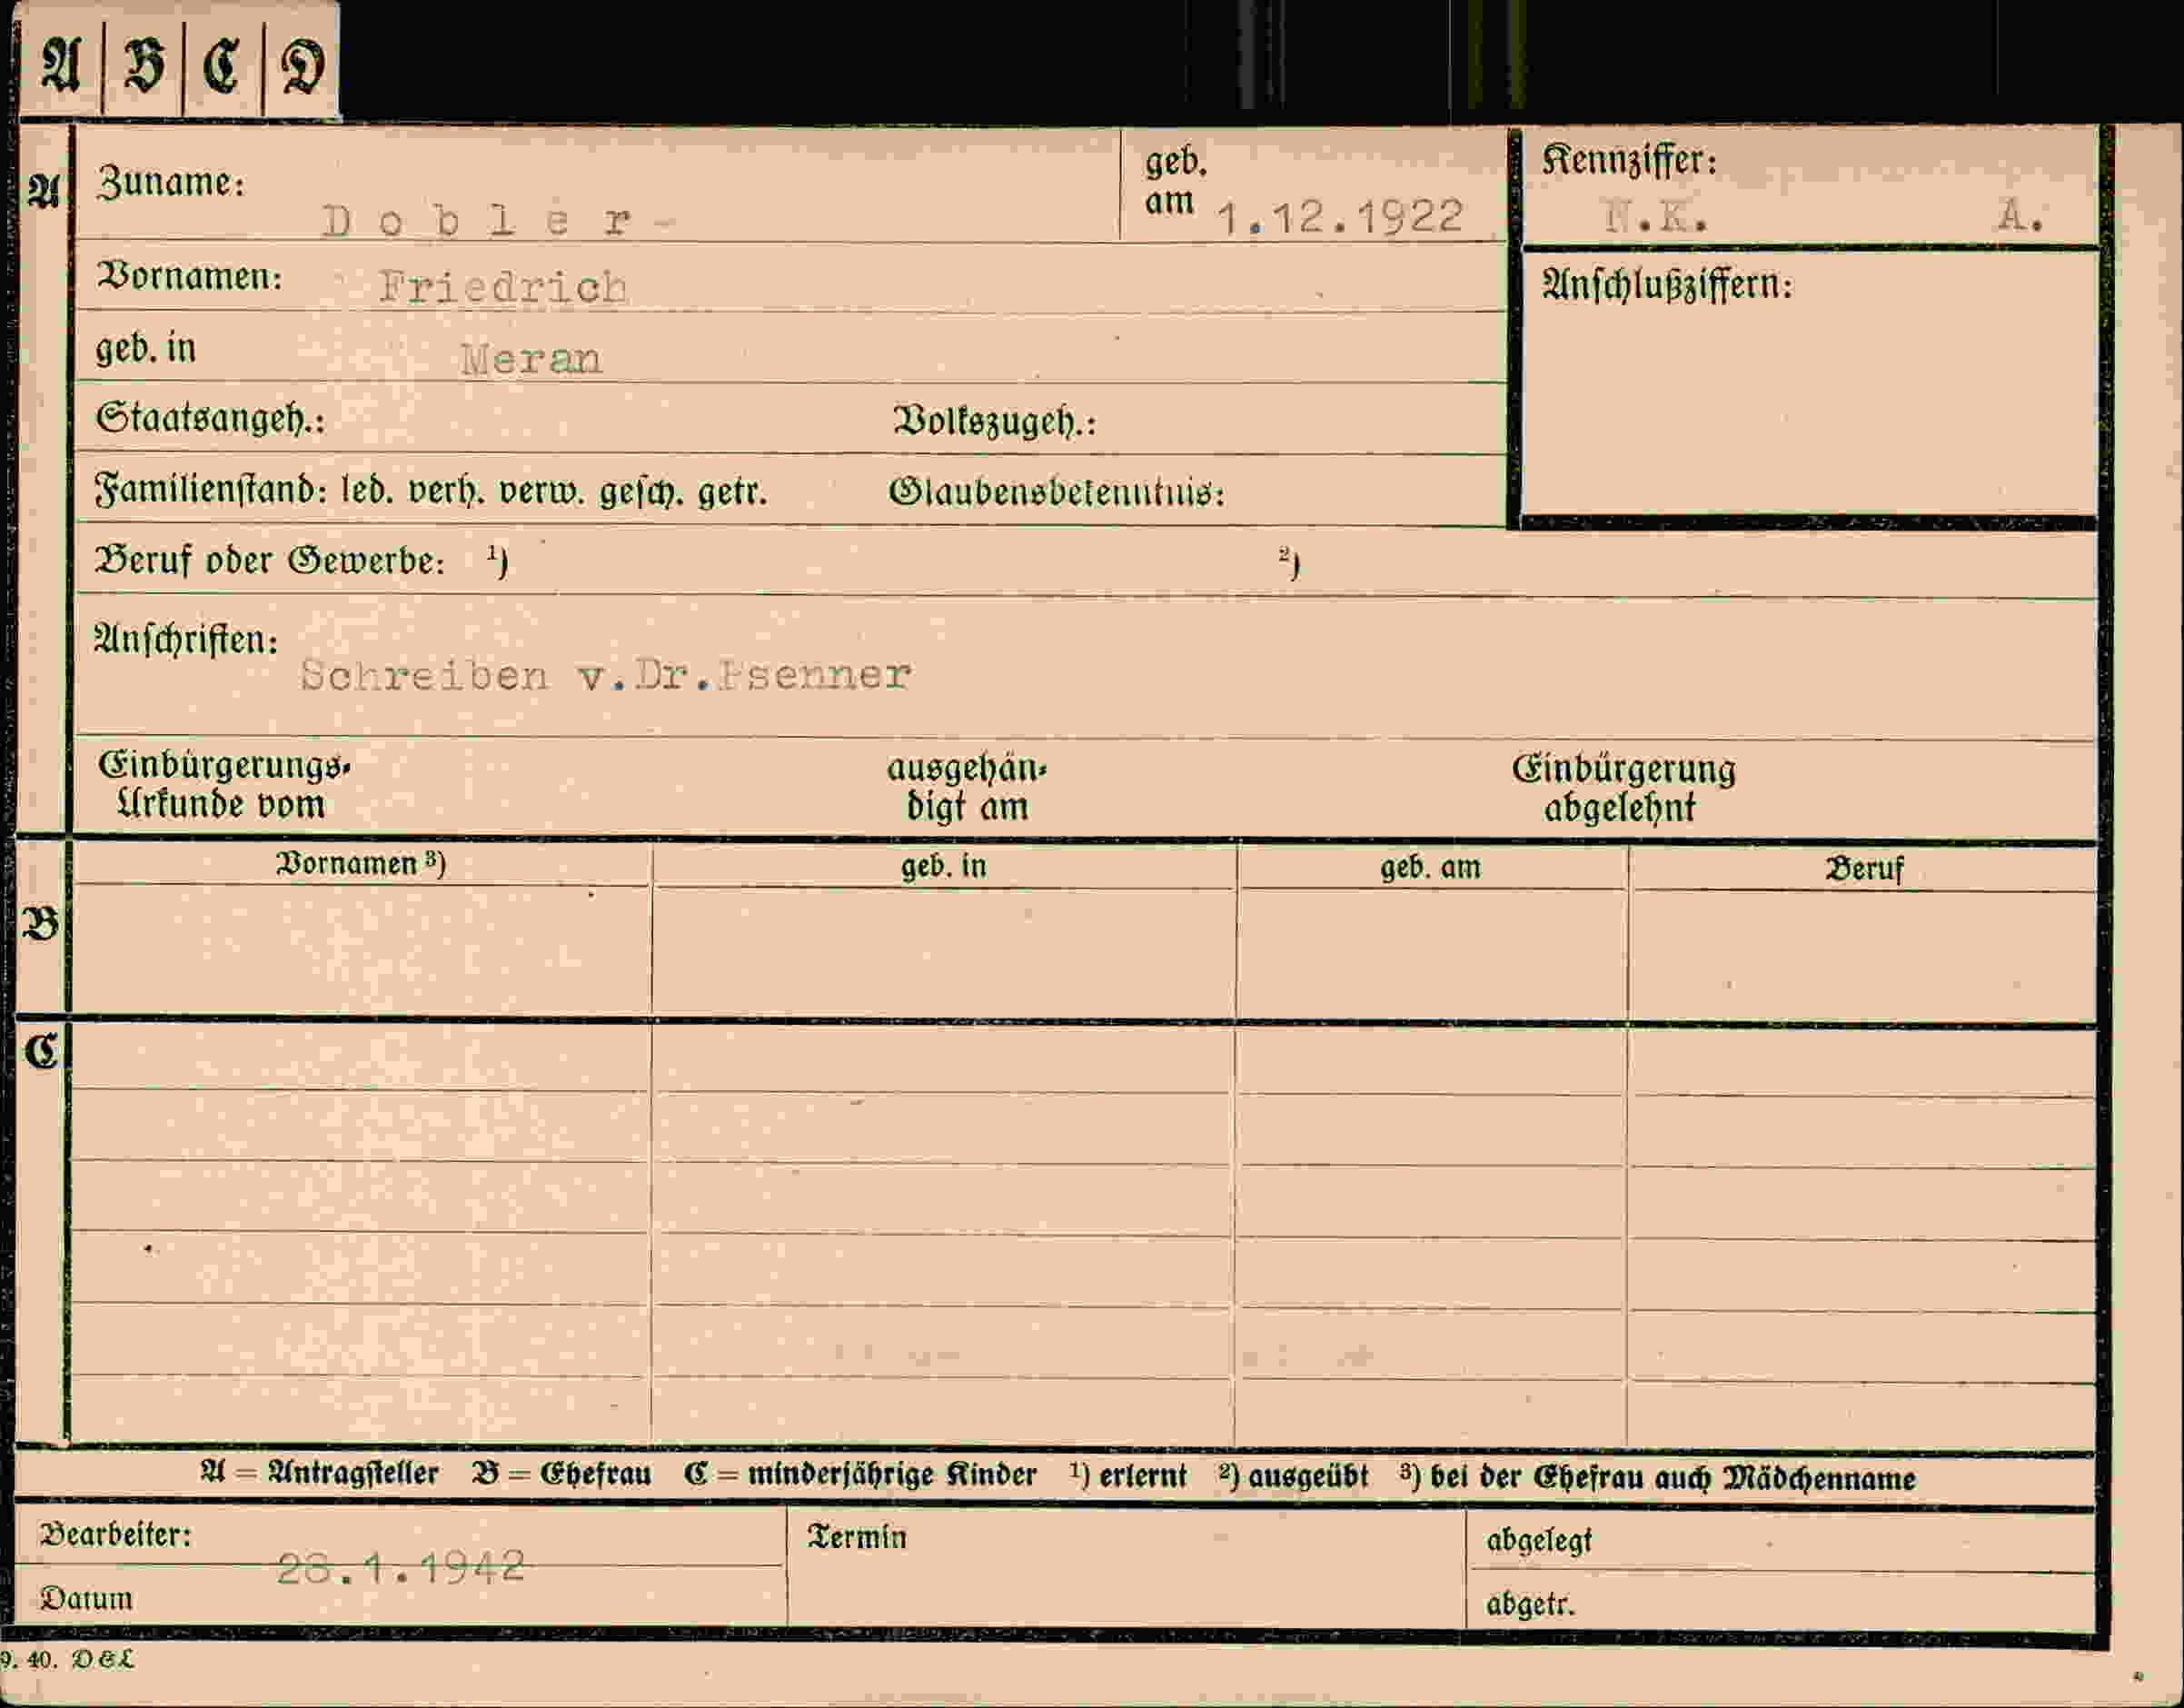 A B C D
A Zuname: Dobler- geb. am 1.12.1922 Kennziffer: N.K. A.
Vornamen: Friedrich Anschlußziffern:
geb. in Meran
Staatsangeh.: Volkszugeh.:
Familienstand: led. verh. verw. gesch. getr. Glaubensbekenntnis:
Beruf oder Gewerbe: ¹) ²)
Anschriften:
Schreiben v.Dr.Psenner
Einbürgerungs- ausgehän- Einbürgerung
Urkunde vom digt am abgelehnt
Vornamen ³) geb. in geb. am Beruf
B
C
A = Antragsteller B = Ehefrau C = minderjährige Kinder ¹) erlernt ²) ausgeübt ³) bei der Ehefrau auch Mädchenname
Bearbeiter: Termin abgelegt
28.1.1942
Datum abgetr.
9. 40. D&L